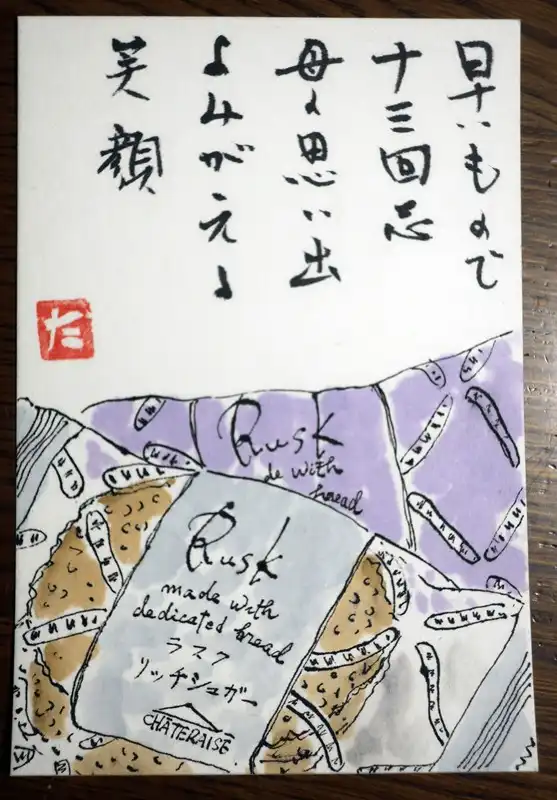 早いもので
十三回忌
母の思い出
よみがえる
笑顔
た
Rusk
de with
bread
Rusk
made with
dedicated bread
ラスク
リッチシュガー
CHÂTERAISÉ